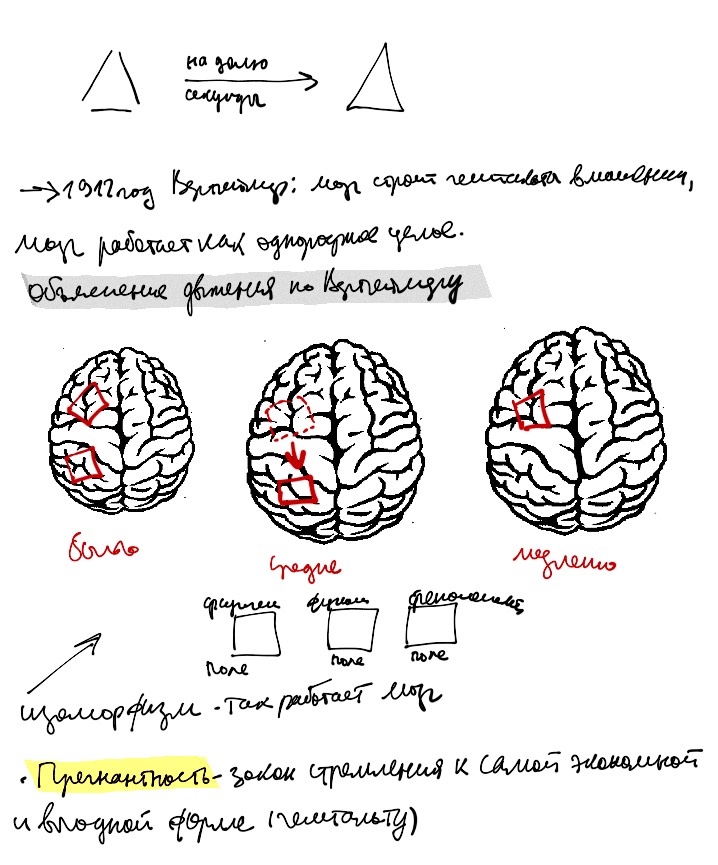 на долю
секунды
→ 1912 год Вертгеймер: мозг строит гештальта в мышлении,
мозг работает как однородное целое.
Объяснение движения по Вертгеймеру
средне
медленно
поле
поле
поле
изоморфизм - так работает мозг
· Прегнантность - закон стремления к самой экономной
и выгодной форме (гештальту)